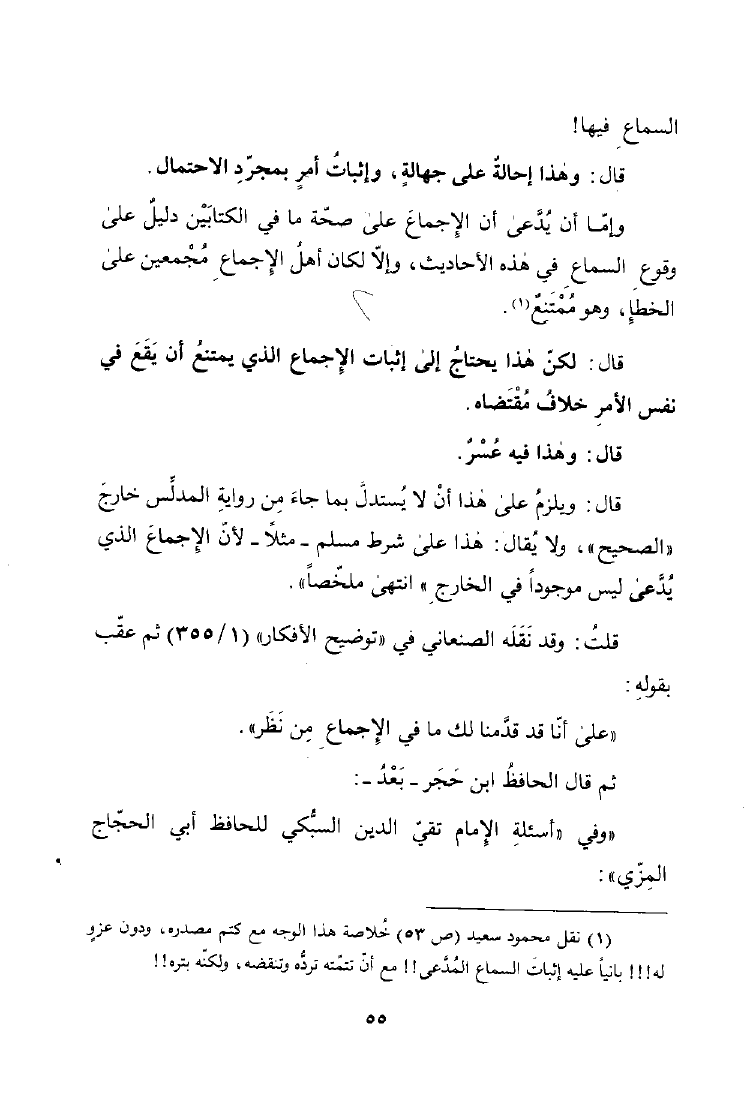 السماعِ فيها!
قال: وهٰذا إحالةٌ على جهالةٍ، وإثباتُ أمرٍ بمجرّدِ الاحتمال.
وإمّا أن يُدَّعىٰ أن الإِجماعَ علىٰ صحّة ما في الكتابَيْن دليلٌ علىٰ
وقوعِ السماعِ في هٰذه الأحاديث، وإلّا لكان أهلُ الإِجماعِ مُجْمعين علىٰ
الخطإِ، وهو مُمْتَنعٌ(١).
قال: لكنّ هٰذا يحتاجُ إلىٰ إثبات الإِجماع الذي يمتنعُ أن يَقَعَ في
نفس الأمرِ خلافُ مُقْتَضاه.
قال: وهٰذا فيه عُسْرٌ.
قال: ويلزمُ علىٰ هٰذا أنْ لا يُستدلَّ بما جاءَ مِن روايةِ المدلِّس خارجَ
«الصحيح»، ولا يُقال: هٰذا علىٰ شرط مسلم ـ مثلاً ـ لأنّ الإِجماعَ الذي
يُدَّعىٰ ليس موجوداً في الخارجِ» انتهىٰ ملخّصاً».
قلتُ: وقد نَقَلَه الصنعاني في «توضيح الأفكار» (١/ ٣٥٥) ثم عقّب
بقولهِ:
«علىٰ أنّا قد قدَّمنا لك ما في الإِجماعِ مِن نَظَر».
ثم قال الحافظُ ابن حَجَر ـ بَعْدُ ـ:
«وفي «أسئلةِ الإِمام تقيّ الدين السبُّكي للحافظ أبي الحجّاج
المِزّي»:
(١) نقل محمود سعيد (ص ٥٣) خُلاصة هذا الوجه مع كتم مصدره، ودون عزوٍ
له!!! بانياً عليه إثباتَ السماع المُدَّعى!! مع أنّ تتمّته تردُّه وتنقضه، ولكنّه بتره!!
٥٥